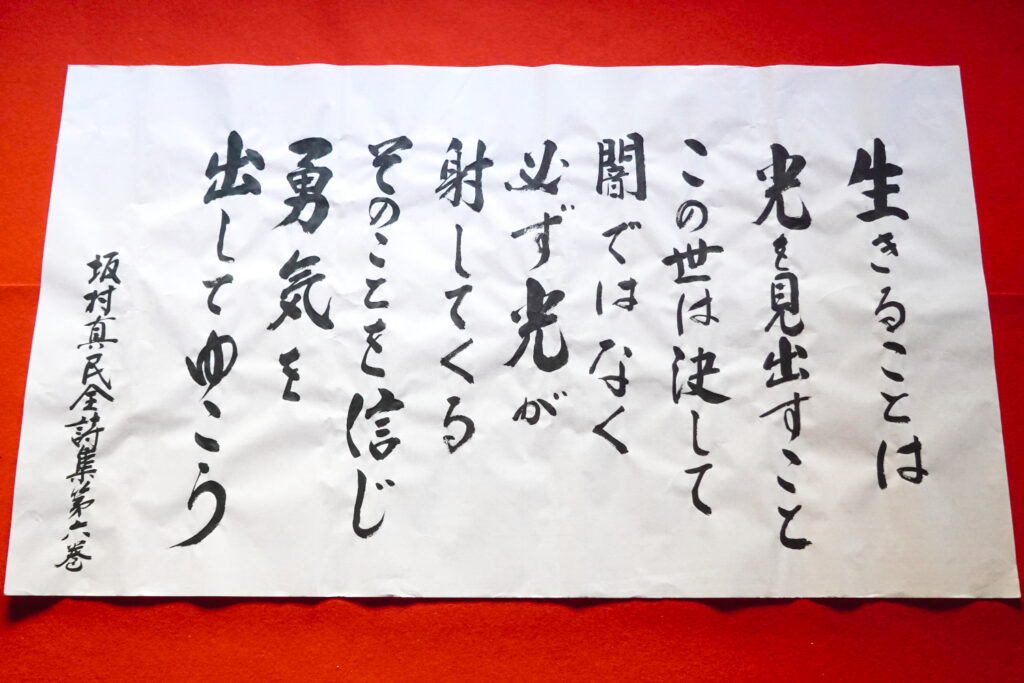 生きることは
光を見出すこと
この世は決して
闇ではなく
必ず光が
射してくる
そのことを信じ
勇気を
出してゆこう
坂村真民全詩集第六巻